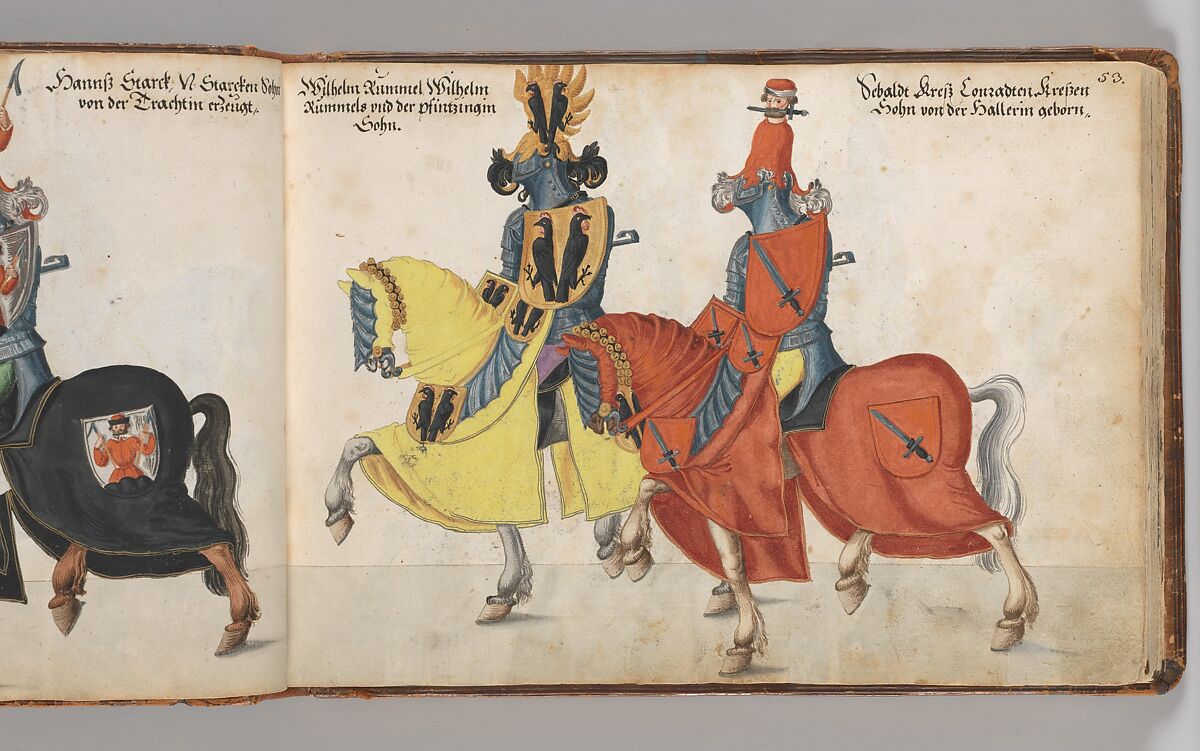 Hannß Starck, N Starcken Sohn
von der Trachtin erzeugt,.
Wilhelm Rummel Wilhelm
Rummels vnd der pfintzingin
Sohn.
Sebaldt Kreß Conradten Kreßen
Sohn von der Hallerin geborn,.
53.